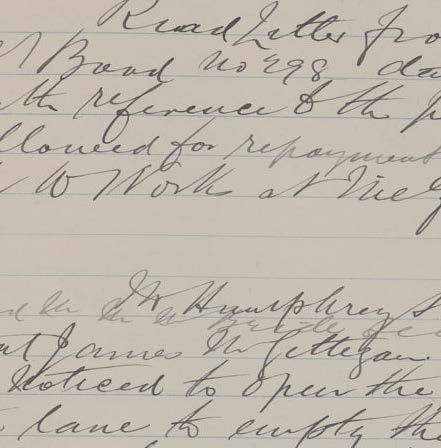 Read Letter fro
Board No 298 da
th reference to the p
llowed for repayment
W Work at
W Humphreys
James McGettegan.
Noticed to open the
lane to empty th